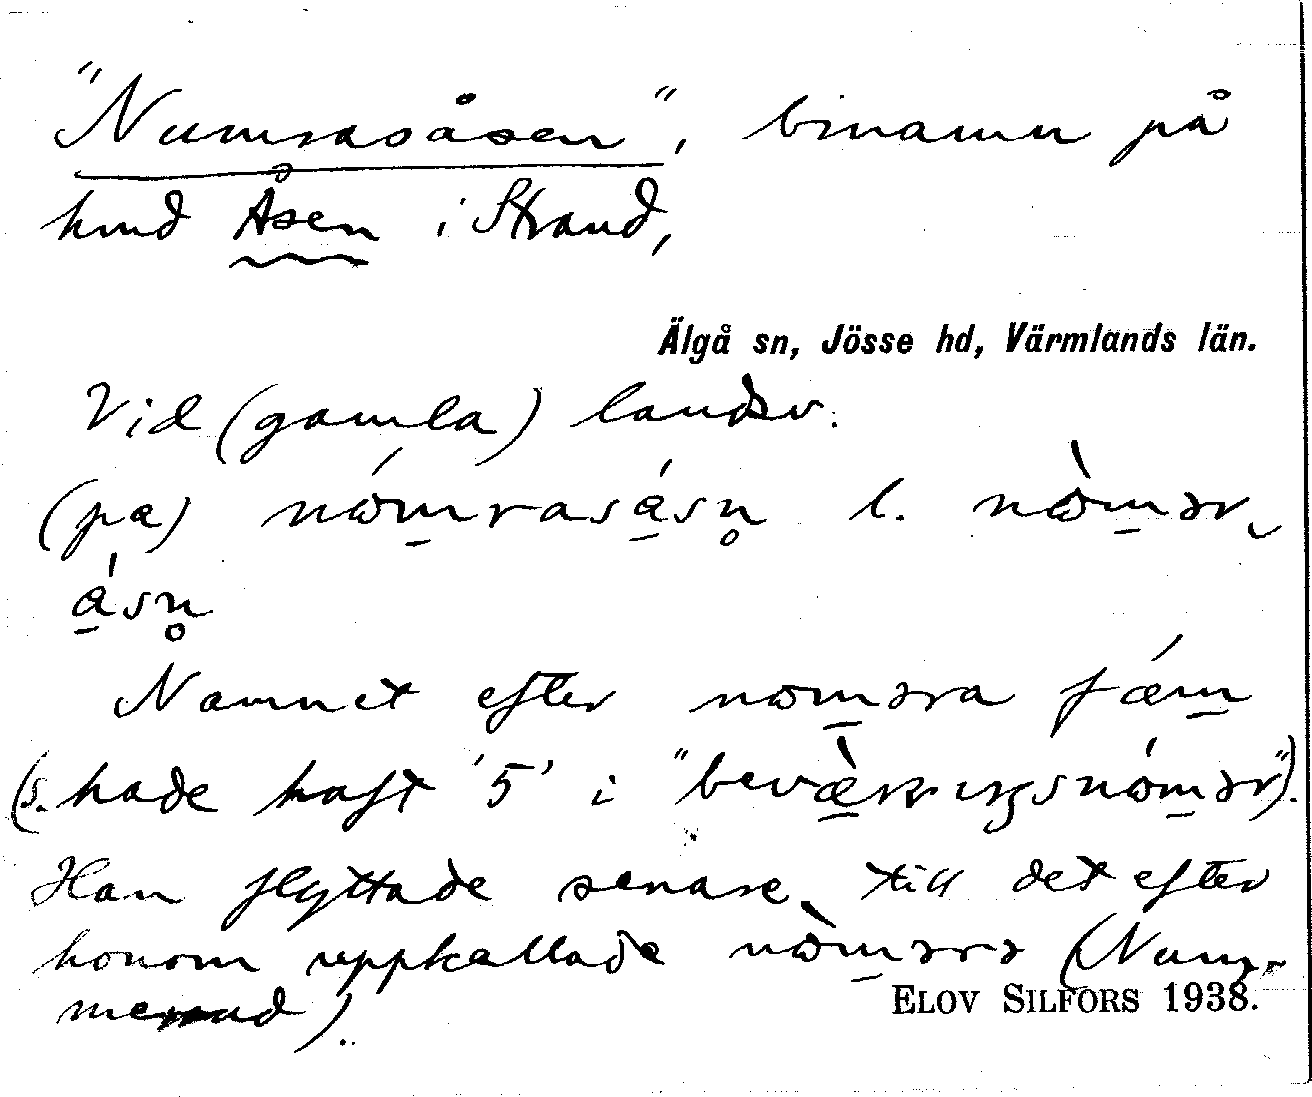 "Numrasåsen", binamn på
hmd Åsen i Strand,
Älgå sn, Jösse hd, Värmlands län.
Vid (gamla) landsv.
(pa) nómrasásn l. nòmər-
ásn
Namnet efter noməra fæm
(s. hade haft '5' i "bevæ̀rɪŋsnómər").
Han flyttade senare till det efter
honom uppkallade nòmərə (Num-
merud).
ELOV SILFORS 1938.